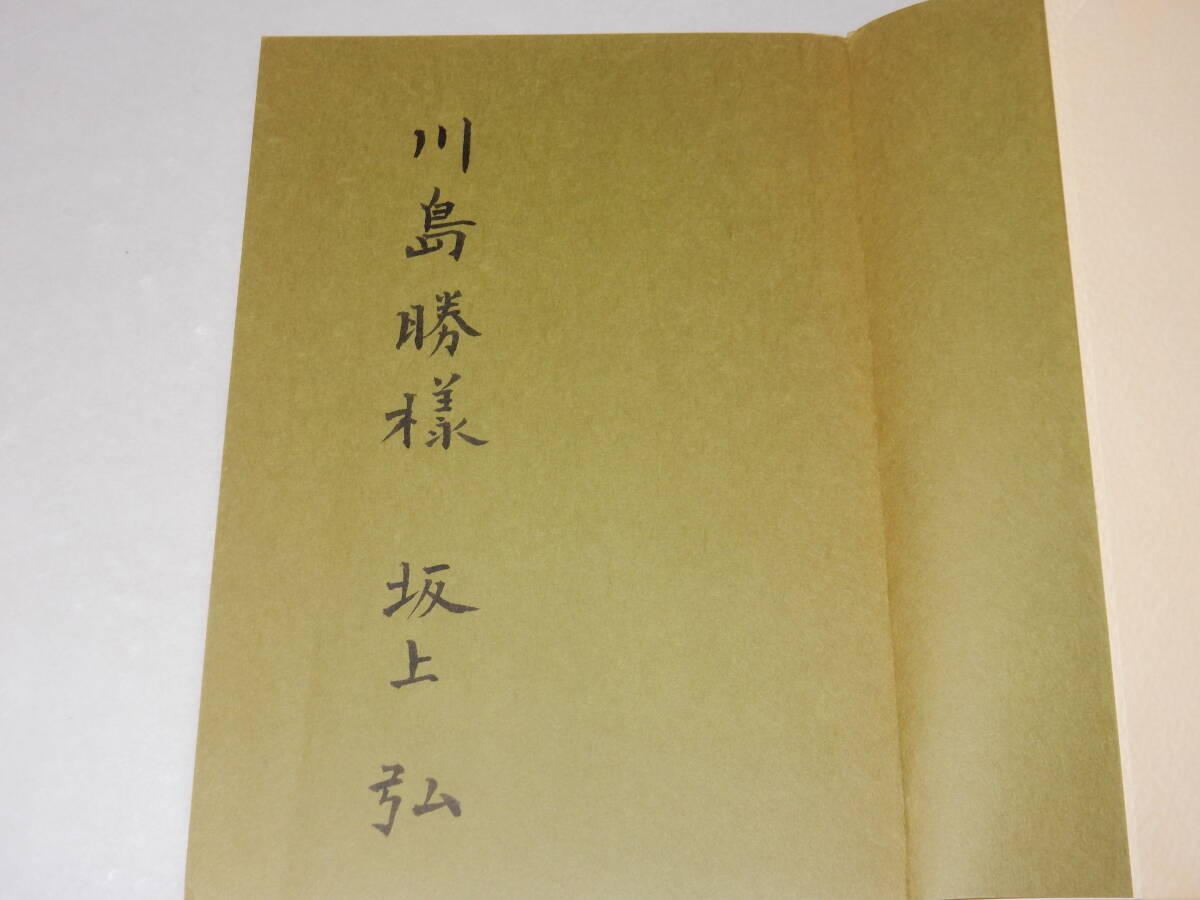 川島勝様 坂上弘